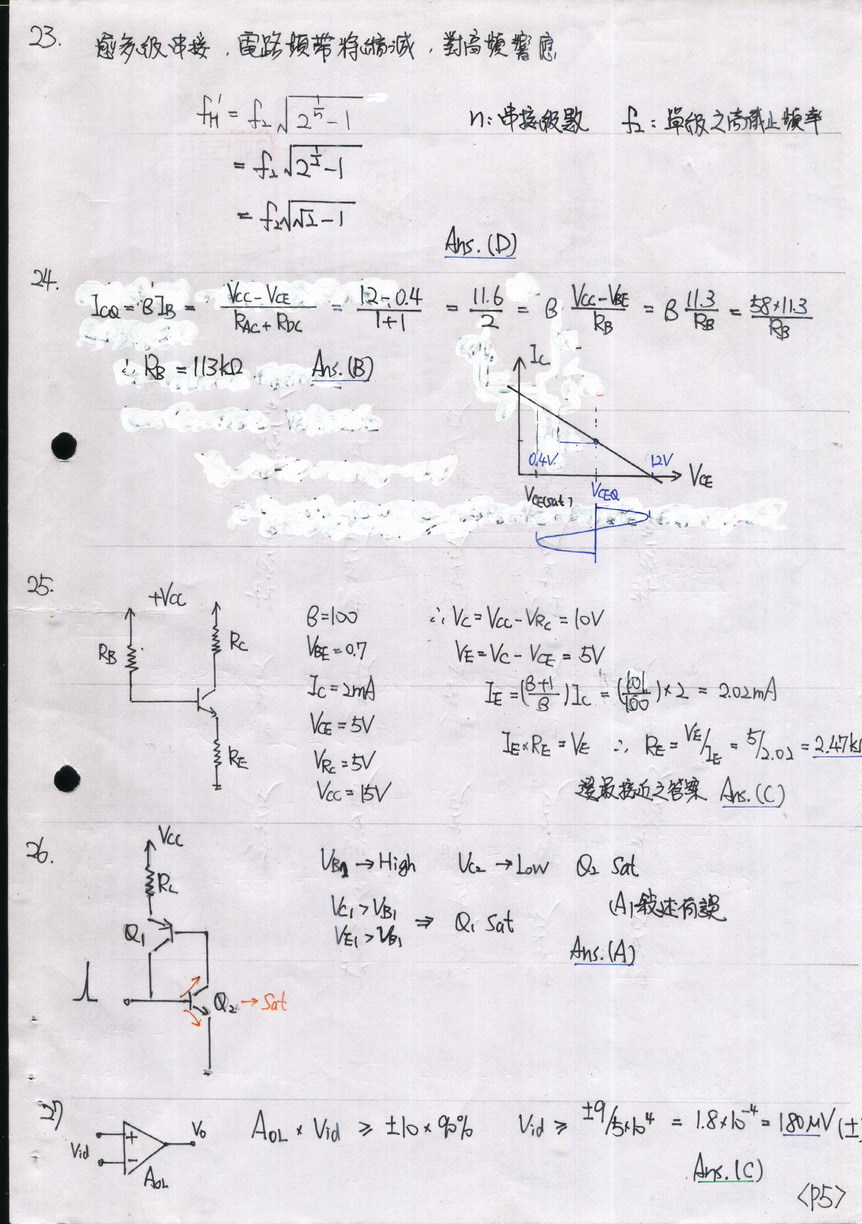 23. 愈多級串接，電路頻帶將縮減，對高頻響應
fH' = f2 √(2^(1/n) − 1)    n: 串接級數    f2: 單級之高截止頻率
= f2 √(2^(1/2) − 1)
= f2 √(√2 − 1)
Ans.(D)
24.
ICQ = βIB = (VCC − VCE)/(RAC + RDC) = (12 − 0.4)/(1+1) = 11.6/2 = β (VCC − VBE)/RB = β 11.3/RB = 58×11.3/RB
∴ RB = 113kΩ    Ans.(B)
IC
0.4V    12V    VCE
VCE(sat)    VCEQ
25.
+VCC
RB    RC
RE
β=100    ∴ VC = VCC − VRC = 10V
VBE = 0.7    VE = VC − VCE = 5V
IC = 2mA    IE = (β+1/β) IC = (101/100) × 2 = 2.02mA
VCE = 5V
VRC = 5V    IE×RE = VE ∴ RE = VE/IE = 5/2.02 = 2.47k
VCC = 15V    選最接近之答案 Ans.(C)
26.
VCC
RL
Q1
Q2 → Sat
VB2 → High    VC2 → Low    Q2 Sat
VC1 > VB1
VE1 > VB1 ⇒ Q1 Sat    (A) 敘述有誤
Ans.(A)
27
Vid    + −    AOL    Vo
AOL × Vid ≥ ±10 × 90%    Vid ≥ ±9/5×10^4 = 1.8×10^-4 = 180μV (±)
Ans.(C)
<P5>